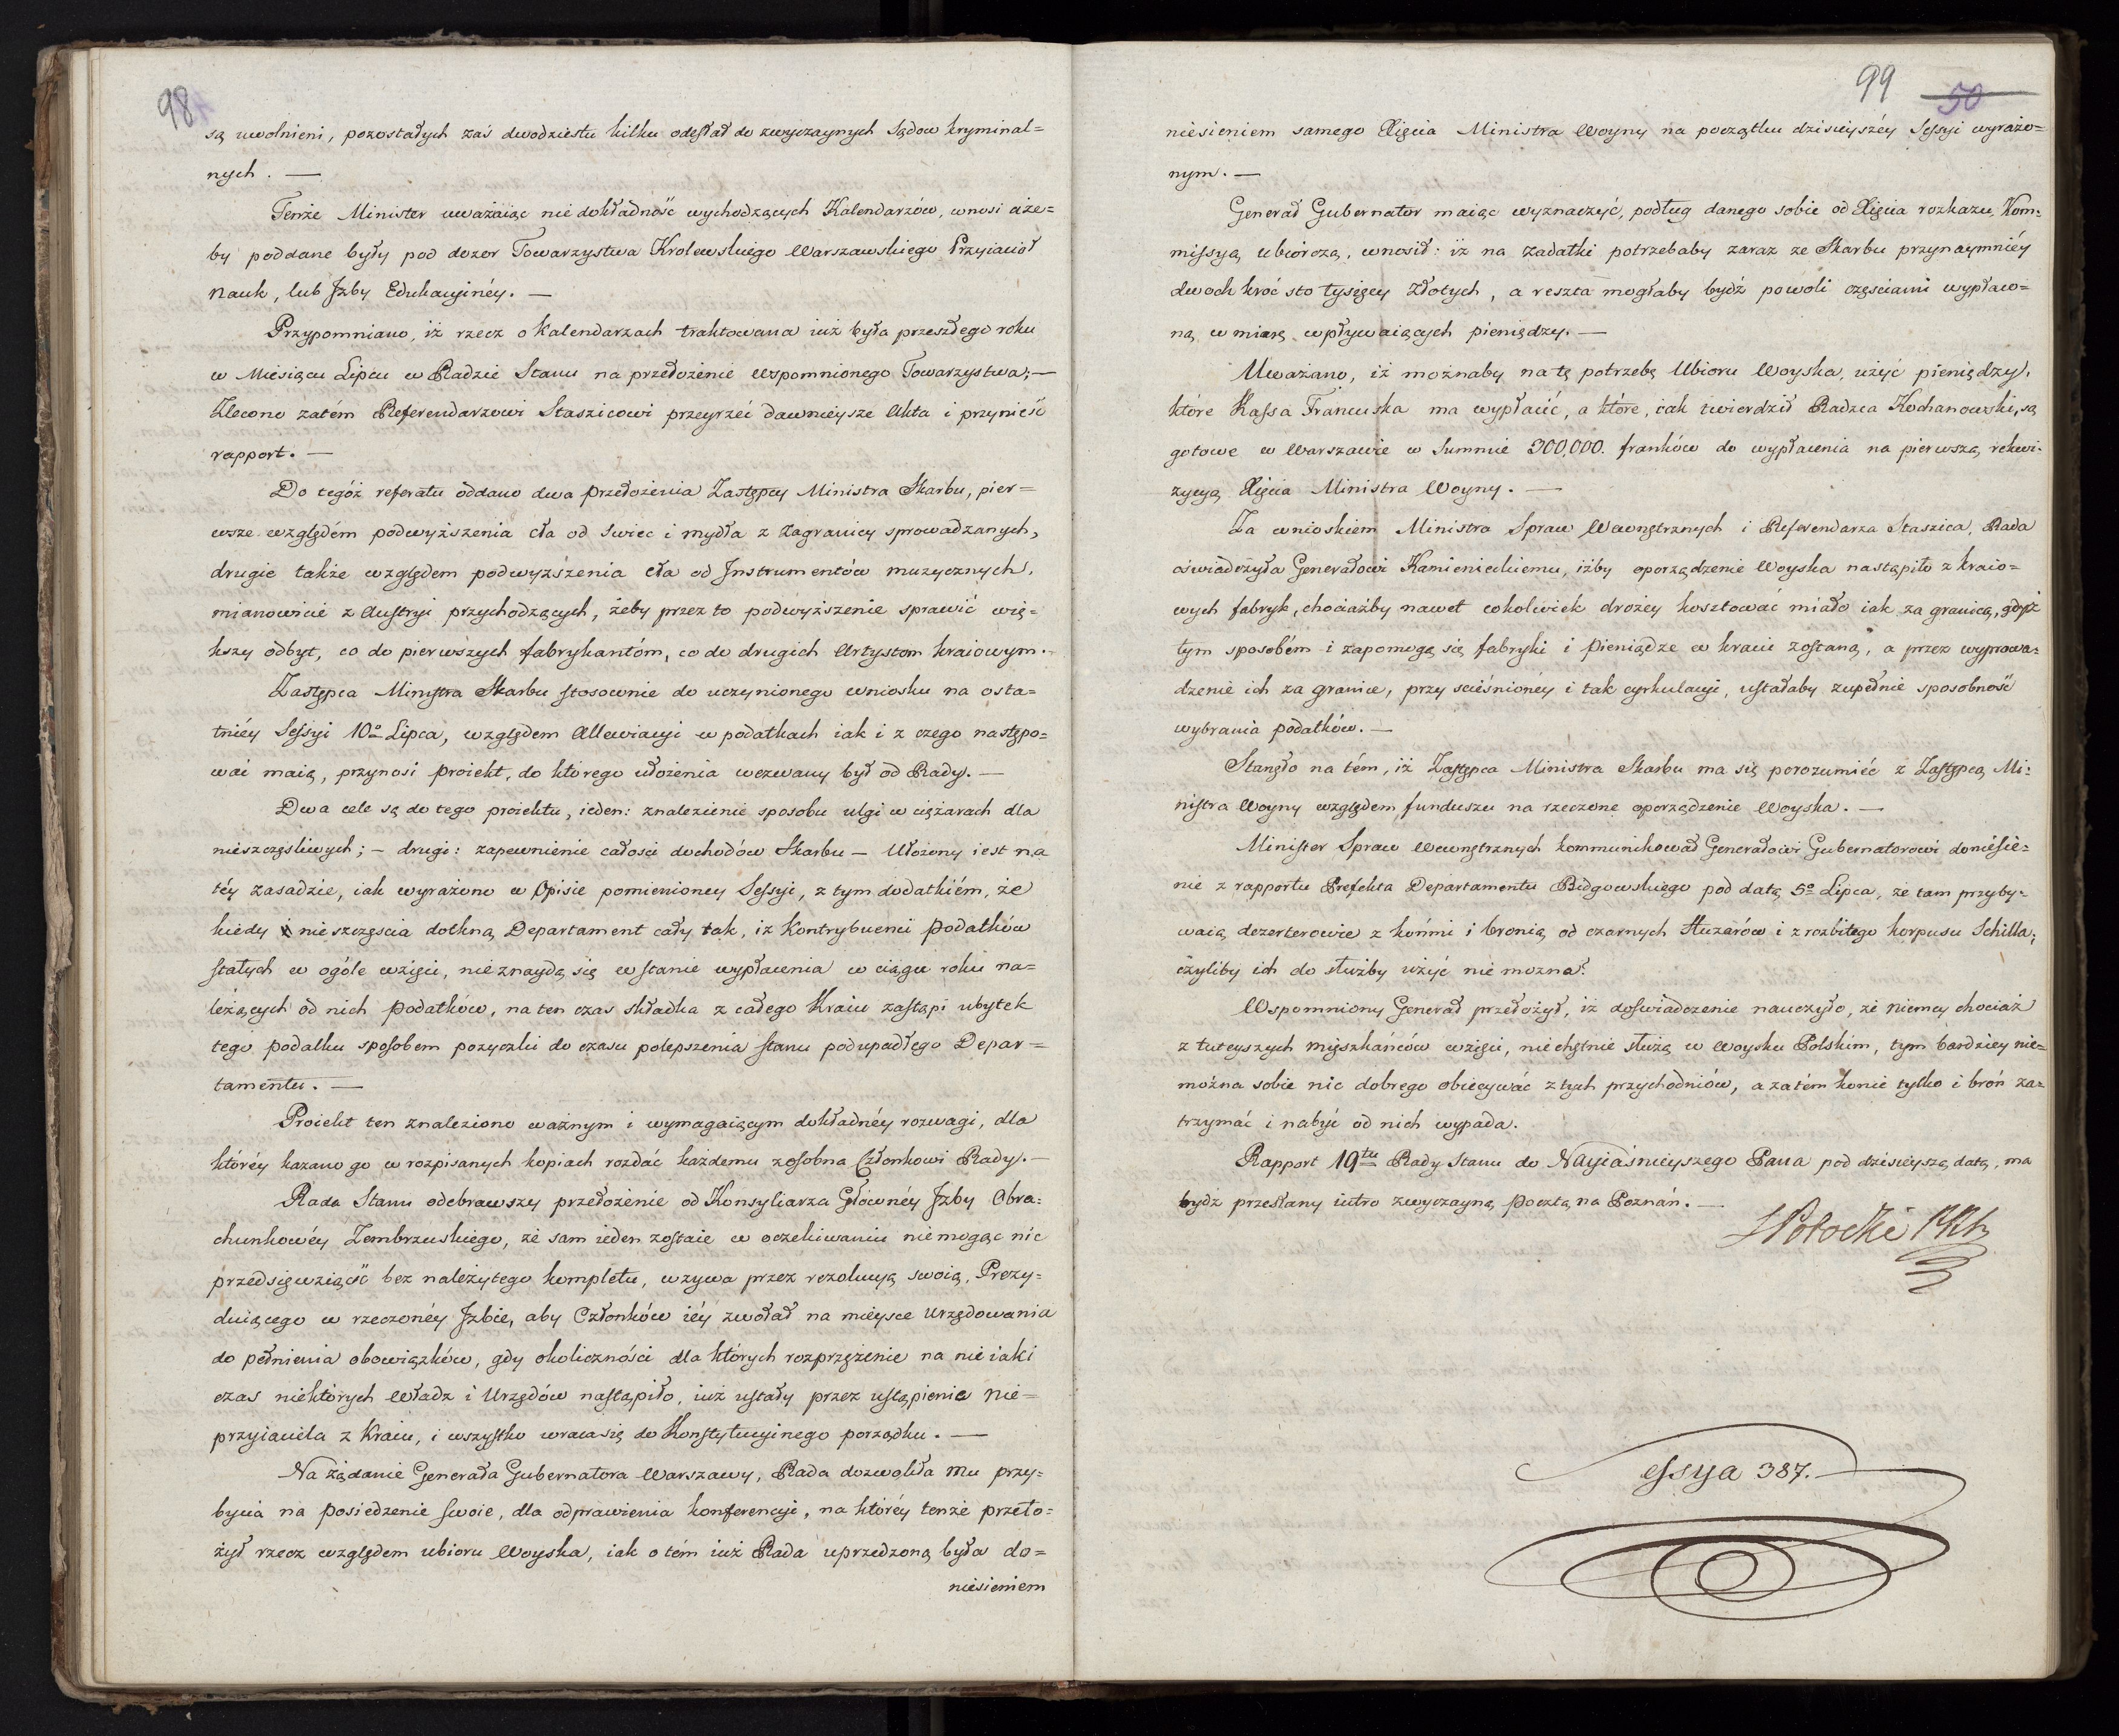 98
są uwolnieni, pozostałych zaś dwodziestu kilku odesłał do zwyczaynych Sądow kryminal=
nych. —
Tenże Minister uważaiąc niedokładność wychodzących Kalendarzów, wnosi aże=
by poddane były pod dozor Towarzystwa Krolewskiego Warszawskiego Przyiaciół
Nauk, lub Jzby Edukacyinéy. —
Przypomniano, iż rzecz o kalendarzach traktowana iuż była przeszłego roku
w Miesiącu Lipcu w Radzie Stanu na przełożenie wspomnionego Towarzystwa; —
Zlecono zatém Referendarzowi Staszicowi przeyrzéć dawnieysze Akta i przynieść
rapport. —
Do tegóż referatu oddano dwa przełożenia Zastępcy Ministra Skarbu, pier=
wsze względém podwyższenia cła od świec i mydła z zagranicy sprowadzanych,
drugie także względem podwyższenia cła od Jnstrumentów muzycznych,
mianowicie z Austryi przychodzących, żeby przez to podwyższenie sprawić wię=
kszy odbyt, co do pierwszych fabrykantóm, co do drugich Artystom kraiowym. —
Zastępca Ministra Skarbu stosownie do uczynionego wniosku na osta=
tniéy Sessyi 10º Lipca, względem Allewiacyi w podatkach iak i z czego następo=
wać maią, przynosi proiekt, do którego ułożenia wezwany był od Rady. —
Dwa cele są do tego proiektu, ieden: znalezienie sposobu ulgi w ciężarach dla
nieszczęsliwych; — drugi: zapewnienie całości dochodów Skarbu — Ułożony iest na
téy zasadzie, iak wyrażono w Opisie pomienioney Sessyi, z tym dodatkiém, że
kiedy nieszczęscia dotkną Departament cały tak, iż Kontrybuenci podatków
stałych w ogóle wzięci, nieznaydą się w stanie wypłacenia w ciągu roku na=
leżących od nich podatków, na ten czas składka z całego Kraiu zastąpi ubytek
tego podatku sposobem pożyczki do czasu polepszenia stanu podupadłego Depar=
tamentu. —
Proiekt ten znaleziono ważnym i wymagaiącym dokładnéy rozwagi, dla
któréy kazano go w rozpisanych kopiach rozdać każdemu zosobna Członkowi Rady. —
Rada Stanu odebrawszy przełożenie od Konsyliarza Głównéy Jzby Obra=
chunkowéy Zembrzuskiego, że sam ieden zostaie w oczekiwaniu niemogąc nic
przedsięwziąść bez należytego kompletu, wzywa przez rezolucyą swoią, Prezy=
duiącego w rzeczonéy Jzbie, aby Członków iéy zwołał na mieysce Urzędowania
do pełnienia obowiązków, gdy okoliczności dla których rozprzężenie na nieiaki
czas niektórych Władz i Urzędów nastąpiło, iuż ustały przez ustąpienie Nie=
przyiaciela z Kraiu, i wszystko wraca się do Konstytucyinego porządku. —
Na żądanie Generała Gubernatora Warszawy, Rada dozwoliła mu przy=
bycia na posiedzenie swoie, dla odprawienia konferencyi, na któréy tenże przeło=
żył rzecz względem ubioru Woyska, iak o tém iuż Rada uprzedzoną była do=
niesieniem
99
50
niesieniem samego Xięcia Ministra Woyny na początku dzisieyszéy Sessyi wyrażo=
nym. —
Generał Gubernator maiąc wyznaczyć, podług danego sobie od Xięcia rozkazu, Kom=
missyą ubiorczą, wnosił: iż na zadatki potrzebaby zaraz ze Skarbu przynaymniéy
dwoch kroć sto tysięcy Złotych, a reszta mogłaby bydź powoli częsciami wypłaco=
na, w miarę wpływaiących pieniędzy. —
Uważano, iż możnaby na tę potrzebę Ubioru Woyska, użyć pieniędzy,
które Kassa Francuska ma wypłacić, a które, iak twierdził Radzca Kochanowski, są
gotowe w Warszawie w Summie 300,000. franków do wypłacenia na pierwszą rekwi=
zycyą Xięcia Ministra Woyny. —
Za wnioskiem Ministra Spraw Wewnętrznych i Referendarza Staszica, Rada
oświadczyła Generałowi Kamienieckiemu, iżby oporządzenie Woyska nastąpiło z kraio=
wych fabryk, chociażby nawet cokolwiek drożey kosztować miało iak za granicą, gdyż
tym sposobém i zapomogą się fabryki i pieniądze w kraiu zostaną, a przez wyprowa=
dzenie ich za granice, przy scieśnionéy i tak cyrkulacyi, ustałaby zupełnie sposobność
wybrania podatków. —
Stanęło na tém, iż Zastępca Ministra Skarbu ma się porozumiéć z Zastępcą Mi=
nistra Woyny względem funduszu na rzeczone oporządzenie Woyska. —
Minister Spraw Wewnętrznych kommunikował Generałowi Gubernatorowi doniesie=
nie z rapportu Prefekta Departamentu Bidgowskiego pod datą 5º Lipca, że tam przyby=
waią dezerterowie z końmi i bronią od czarnych Huzarów i z rozbitego korpusu Schilla;
czyliby ich do służby użyć nie można?
Wspomniony Generał przełożył, iż doświadczenie nauczyło, że Niemcy chociaż
z tuteyszych mięszkańców wzięci, niechętnie służą w Woysku Polskim, tym bardziey nie=
można sobie nic dobrego obiecywać z tych przychodniów, a zatém konie tylko i broń za=
trzymać i nabyć od nich wypada.
Rapport 19tu Rady Stanu do Nayiaśnieyszego Pana pod dzisieyszą datą, ma
bydź przesłany iutro zwyczayną pocztą na Poznań. —
SPotocki
Sessya 387. —